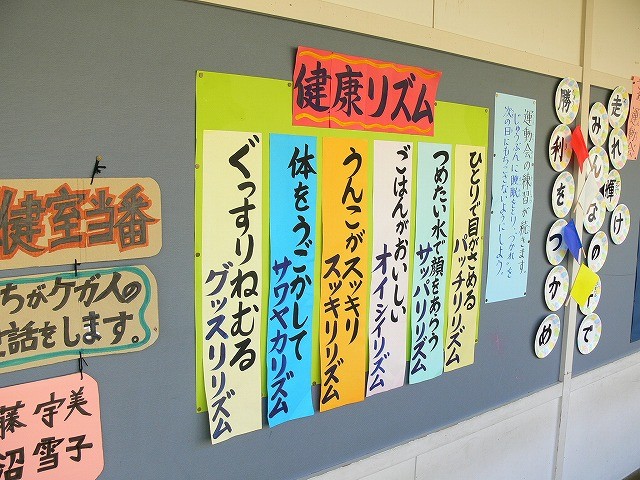 健康リズム
ひとりで目がさめる
パッチリリズム
つめたい水で顔をあらう
サッパリリズム
ごはんがおいしい
オイシイリズム
うんこがスッキリ
スッキリリズム
体をうごかして
サワヤカリズム
ぐっすりねむる
グッスリリズム
運動会の練習が続きます。
じゅうぶんに睡眠をとり、つかれを
次の日にもちこさないようにしよう。
走れ輝け
みんなの
勝利をつかめ
健室当番
ちがケガ人の
世話をします。
藤 宇美
沼 雪子